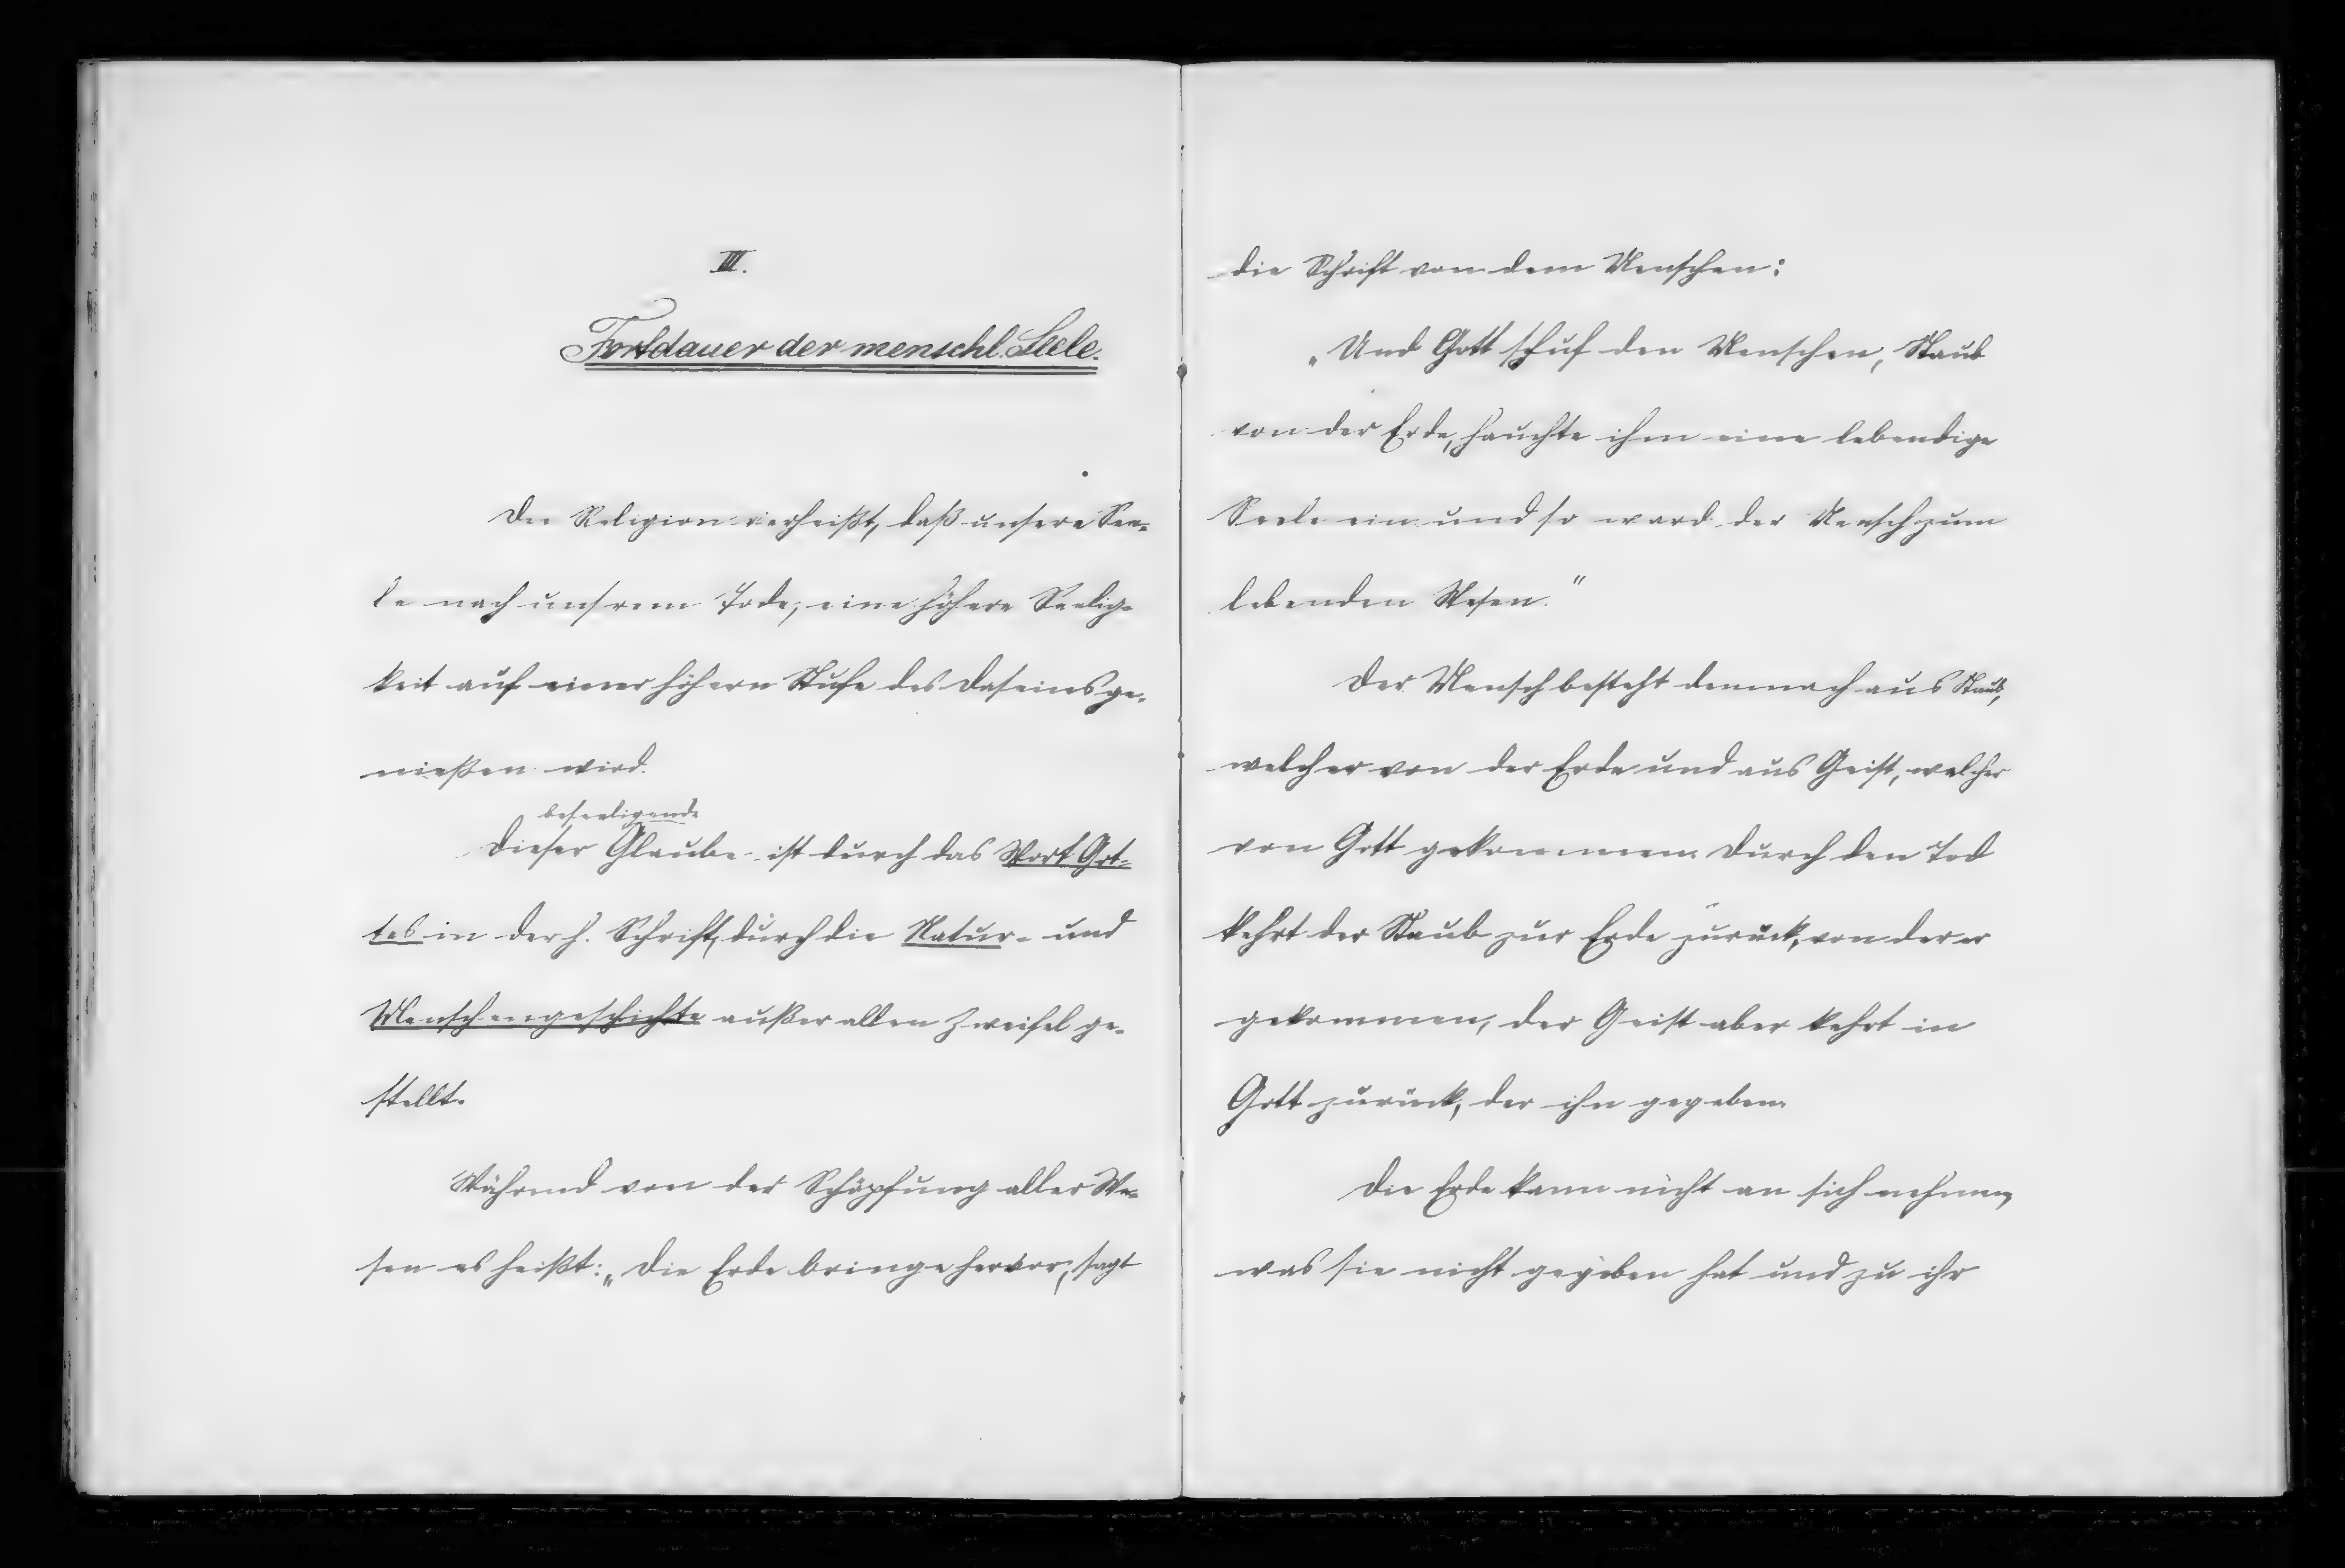 III.
Fortdauer der menschl. Seele.
Die Religion verheißt, daß unsere See-
le nach unsrem Tode, eine höhere Seelig-
keit auf einer höhern Stufe des Daseins ge-
nießen wird.
beseeligende
Dieser Glaube ist durch das Wort Got-
tes in der h. Schrift, durch die Natur- und
Menschengeschichte außer allen Zweifel ge-
stellt.
Während von der Schöpfung aller We-
sen es heißt: „Die Erde bringe hervor, sagt
die Schrift von dem Menschen:
„Und Gott schuf den Menschen, Staub
von der Erde, hauchte ihm eine lebendige
Seele ein und so ward der Mensch zum
lebenden Wesen.“
Der Mensch besteht demnach aus Staub,
welcher von der Erde und aus Geist, welcher
von Gott gekommen. Durch den Tod
kehrt der Staub zur Erde zurück, von der er
gekommen, der Geist aber kehrt in
Gott zurück, der ihn gegeben.
Die Erde kann nicht an sich nehmen,
was sie nicht gegeben hat und zu ihr